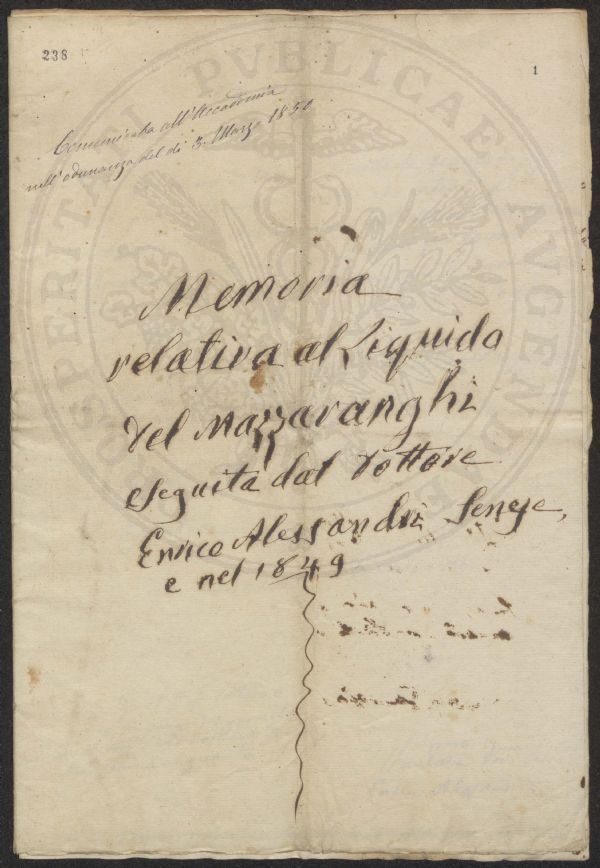 238
1
Comunicata all'Accademia
nell'adunanza del dì 3. Marzo 1850
Memoria
relativa al Liquido
del Mazzaranghi
eseguita dal Dottore
Enrico Alessandri Senese,
e nel 1849
PROSPERITATI PVBLICAE AVGENDAE